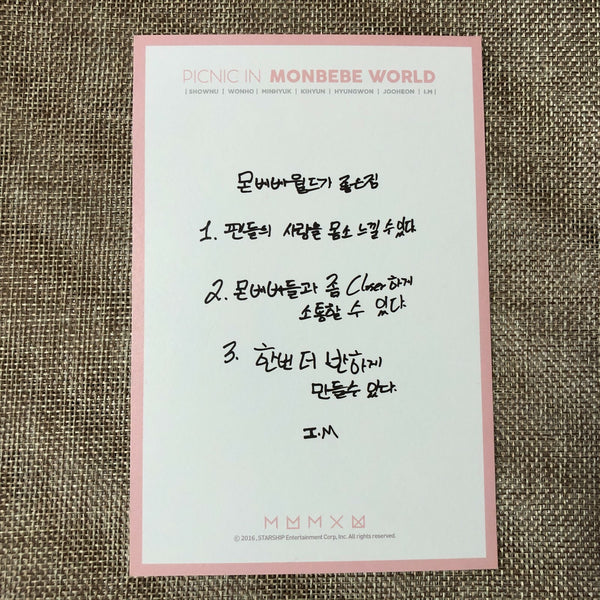 PICNIC IN MONBEBE WORLD
| SHOWNU | WONHO | MINHYUK | KIHYUN | HYUNGWON | JOOHEON | I.M |
몬베베월드가 좋은점
1. 팬들의 사랑을 몸소 느낄 수 있다
2. 몬베베들과 좀 Closer하게
소통할 수 있다
3. 한번 더 반하게
만들수 있다.
I.M
© 2016, STARSHIP Entertainment Corp, Inc. All rights reserved.